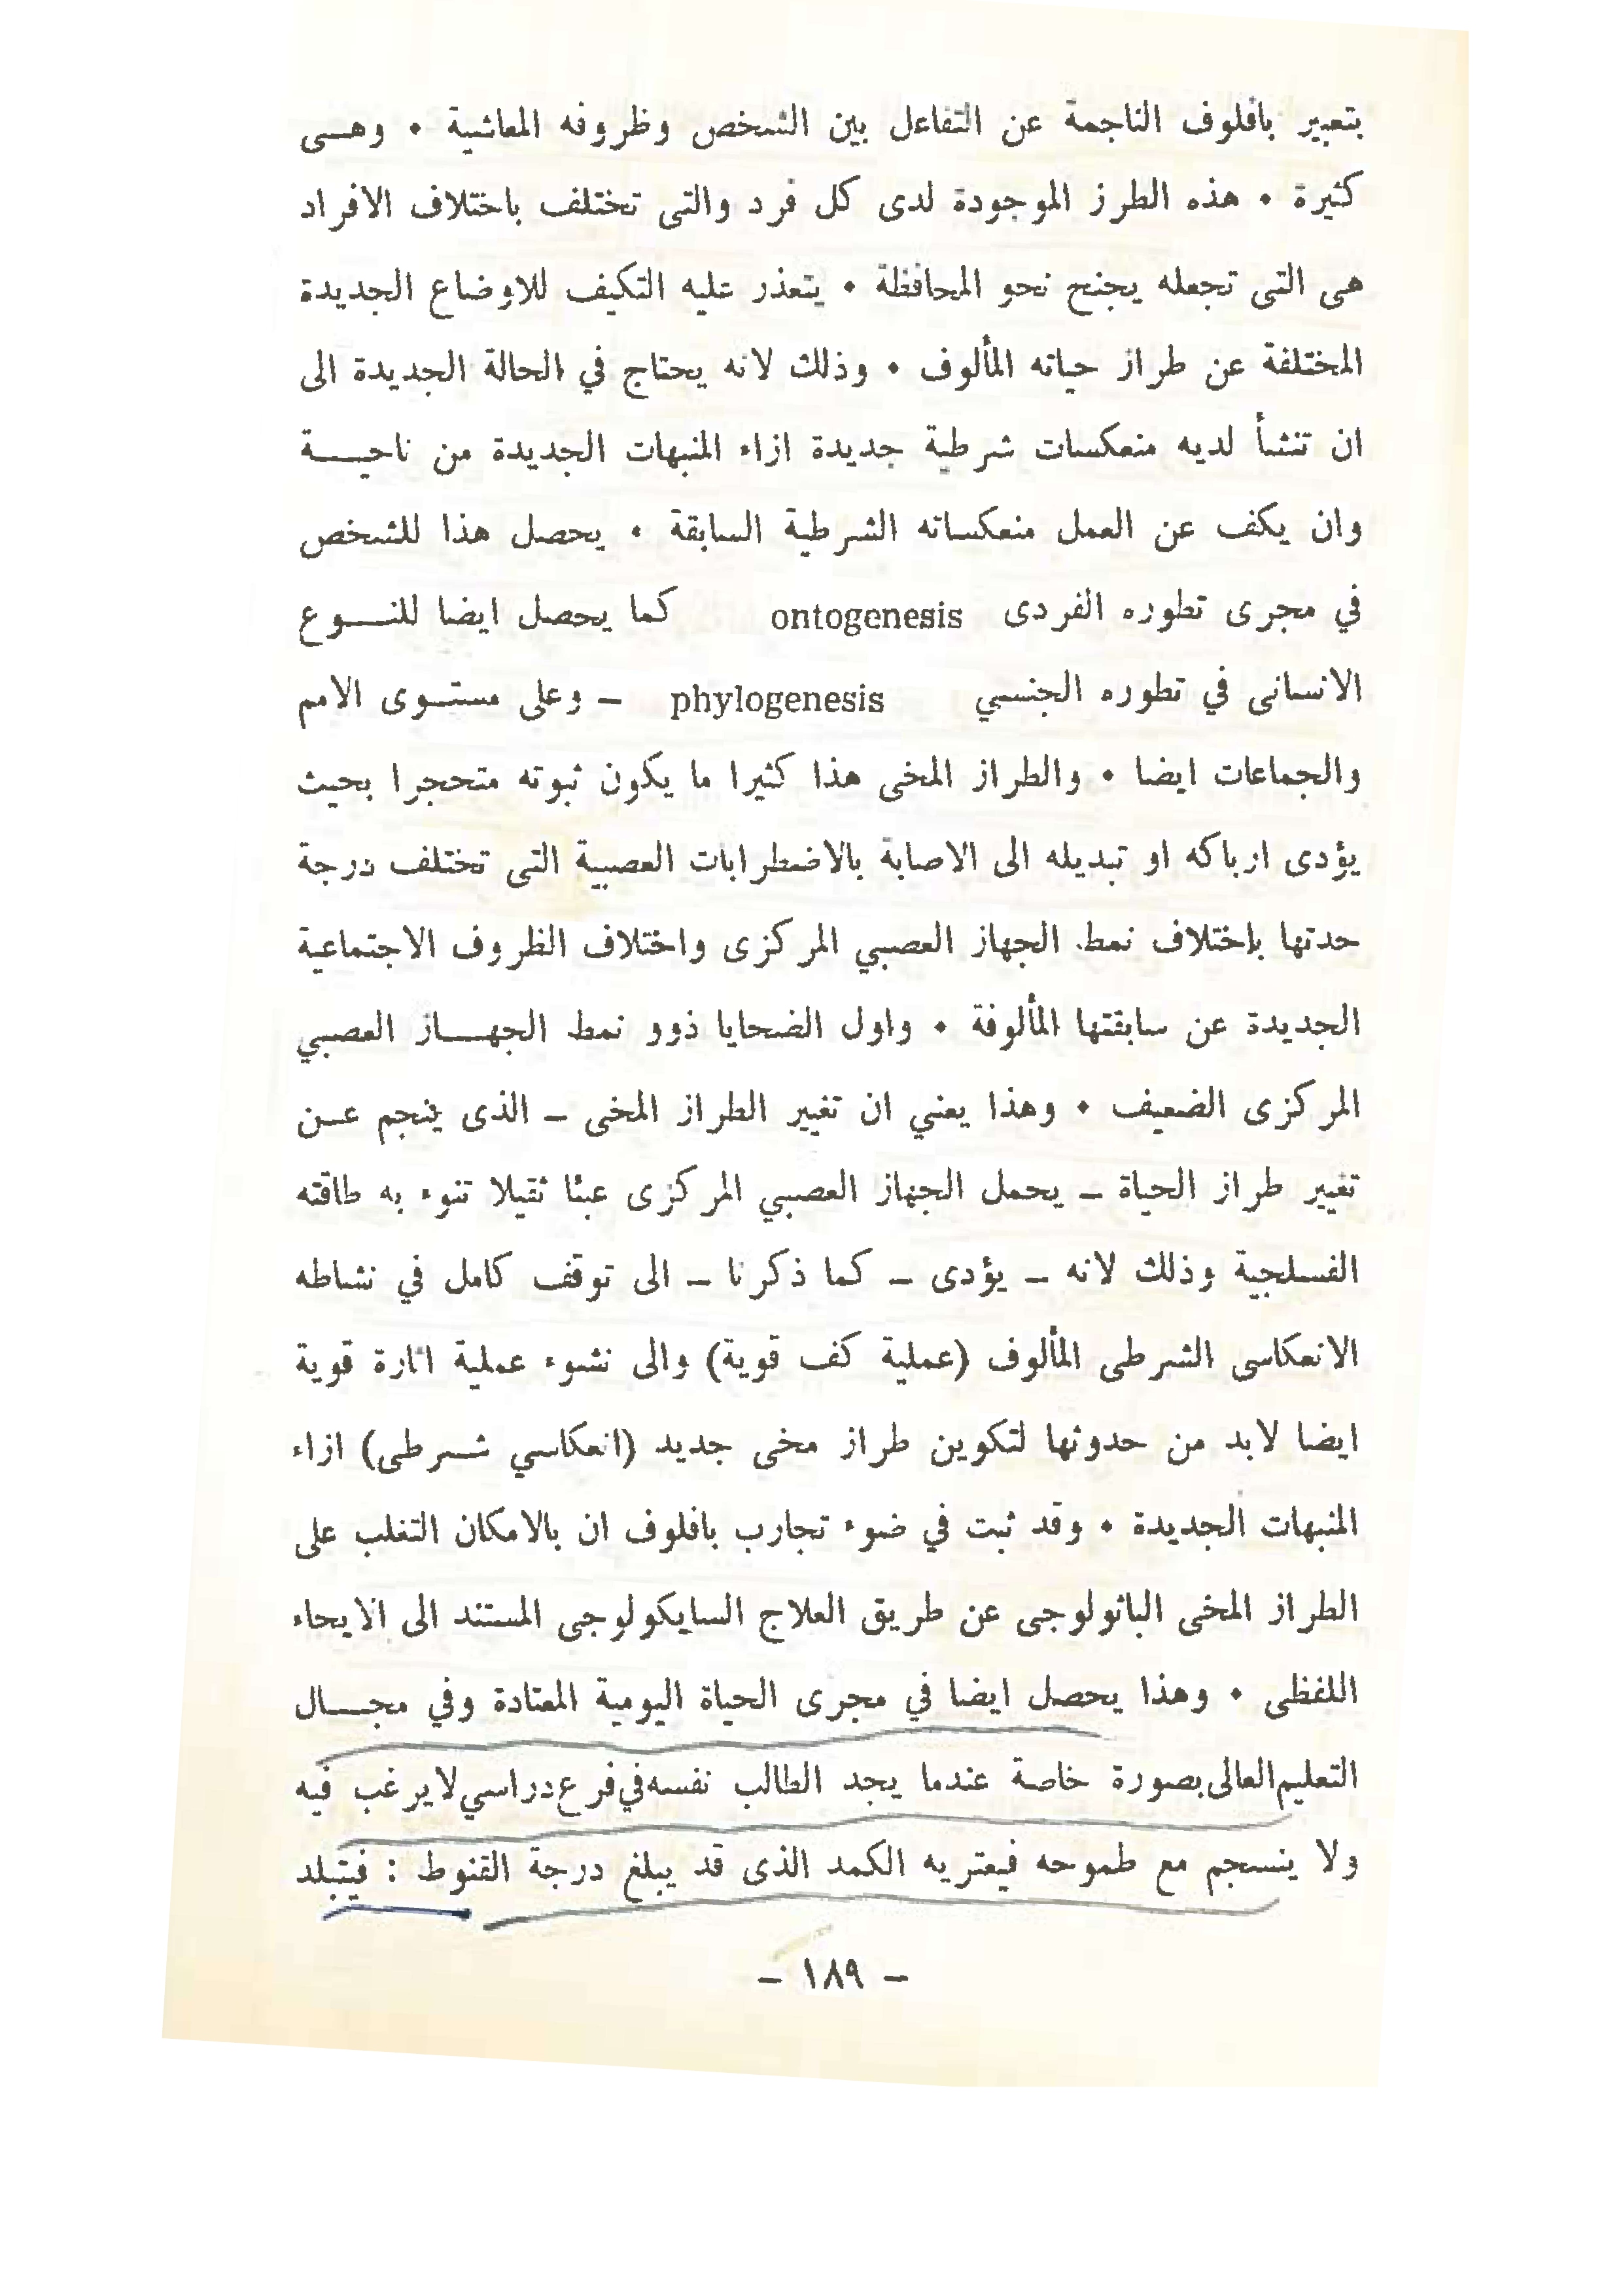 بتعبير بافلوف الناجمة عن التفاعل بين الشخص وظروفه المعاشية • وهـى
كثيرة • هذه الطرز الموجودة لدى كل فرد والتى تختلف باختلاف الافراد
هى التى تجعله يجنح نحو المحافظة • يتعذر عليه التكيف للاوضاع الجديدة
المختلفة عن طراز حياته المألوف • وذلك لانه يحتاج في الحالة الجديدة الى
ان تنشأ لديه منعكسات شرطية جديدة ازاء المنبهات الجديدة من ناحيـــة
وان يكف عن العمل منعكساته الشرطية السابقة • يحصل هذا للشخص
في مجرى تطوره الفردى ontogenesis كما يحصل ايضا للنـــوع
الانسانى في تطوره الجنسي phylogenesis – وعلى مستـوى الامم
والجماعات ايضا • والطراز المخى هذا كثيرا ما يكون ثبوته متحجرا بحيث
يؤدى ارباكه او تبديله الى الاصابة بالاضطرابات العصبية التى تختلف درجة
حدتها بإختلاف نمط الجهاز العصبي المركزى واختلاف الظروف الاجتماعية
الجديدة عن سابقتها المألوفة • واول الضحايا ذوو نمط الجهـــاز العصبي
المركزى الضعيف • وهذا يعني ان تغيير الطراز المخى – الذى ينجم عـن
تغيير طراز الحياة – يحمل الجهاز العصبي المركزى عبئا ثقيلا تنوء به طاقته
الفسلجية وذلك لانه – يؤدى – كما ذكرنا – الى توقف كامل في نشاطه
الانعكاسى الشرطى المألوف (عملية كف قوية) والى نشوء عملية اثارة قوية
ايضا لابد من حدوثها لتكوين طراز مخى جديد (انعكاسي شـرطى) ازاء
المنبهات الجديدة • وقد ثبت في ضوء تجارب بافلوف ان بالامكان التغلب على
الطراز المخى الباثولوجى عن طريق العلاج السايكولوجى المستند الى الايحاء
اللفظى • وهذا يحصل ايضا في مجرى الحياة اليومية المعتادة وفي مجـــال
التعليم العالى بصورة خاصة عندما يجد الطالب نفسه في فرع دراسي لا يرغب فيه
ولا ينسجم مع طموحه فيعتريه الكمد الذى قد يبلغ درجة القنوط : فيتبلد
– ١٨٩ –